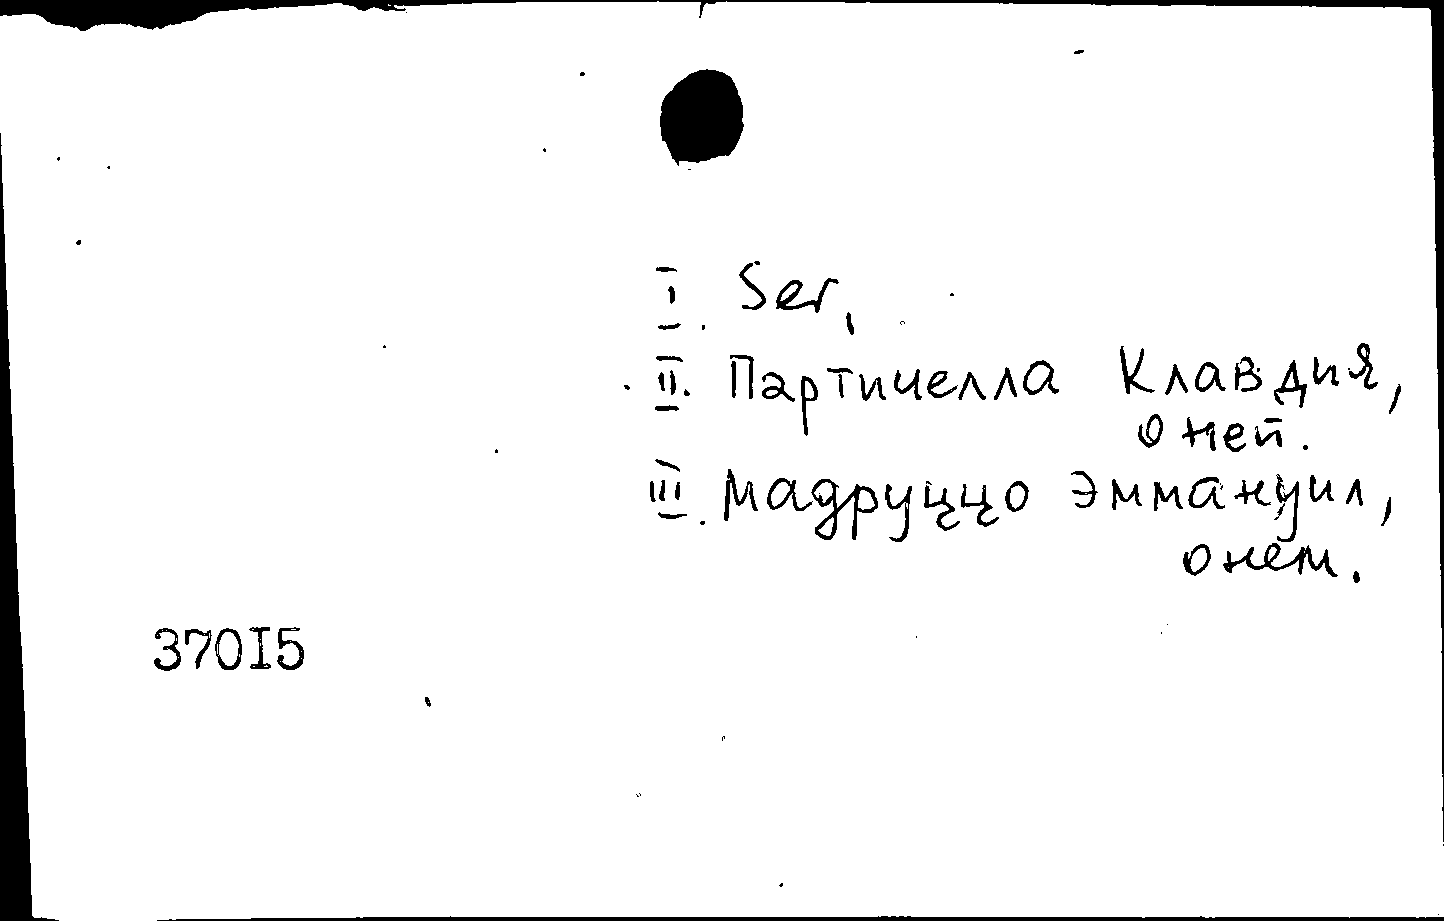 I. Ser.
II. Партичелла Клавдия,
о ней.
III. Мадруццо Эммануил,
о нем.
370I5